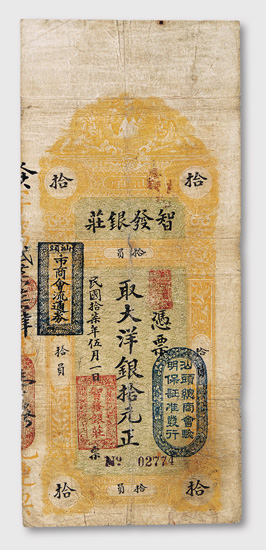 拾 拾
智發銀莊
拾員
憑票
取大洋銀拾元正
民國拾柒年伍月一日
智發銀莊 票
汕頭
市商會流通券
汕頭總商會驗
明保証准發行
拾員
拾
No 02774
拾 拾員 拾